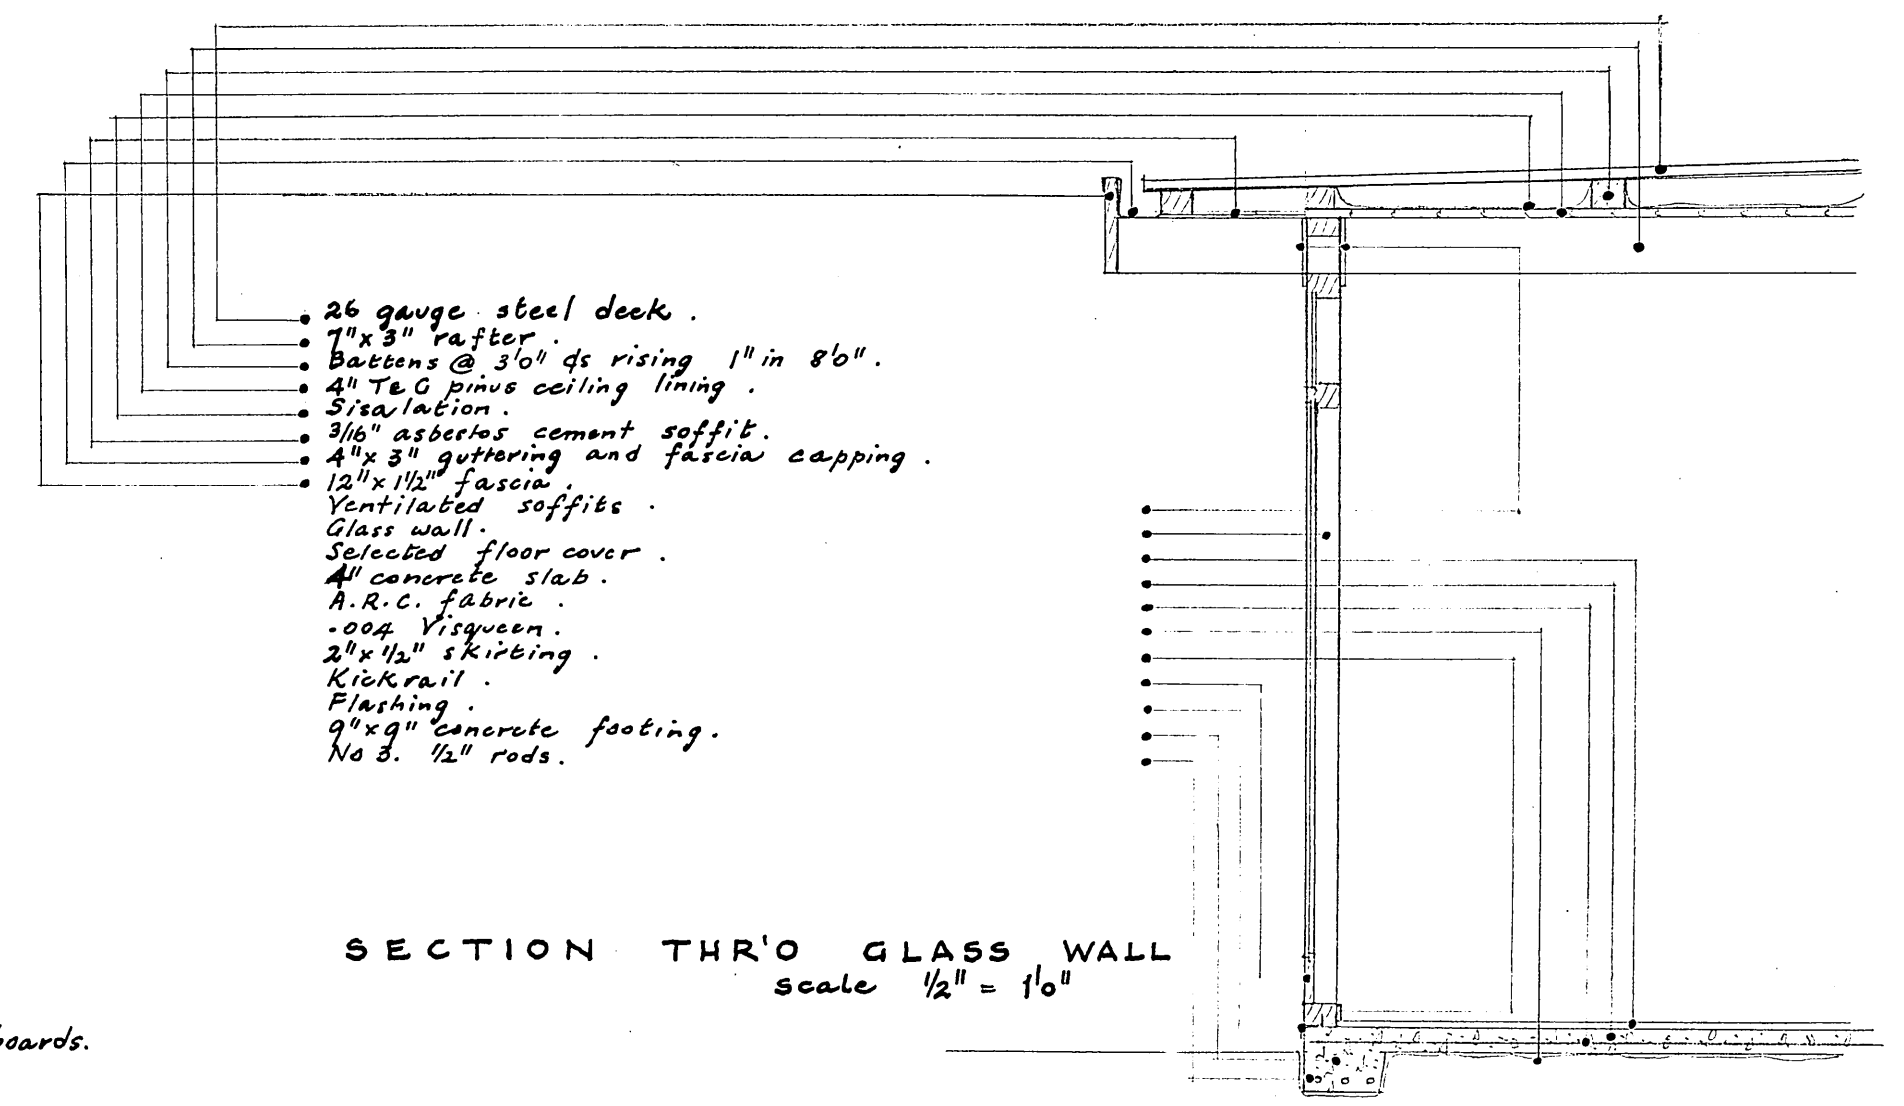 26 gauge steel deck.
7"x 3" rafter.
Battens @ 3'0" crs rising 1" in 8'0".
4" T&G pinus ceiling lining.
Sisalation.
3/16" asbestos cement soffit.
4"x 3" guttering and fascia capping.
12"x 1 1/2" fascia.
Ventilated soffits.
Glass wall.
Selected floor cover.
4" concrete slab.
A.R.C. fabric.
.004 Visqueen.
2"x 1/2" skirting.
Kickrail.
Flashing.
9"x9" concrete footing.
No 3. 1/2" rods.
SECTION THR'O GLASS WALL
scale 1/2" = 1'0"
boards.